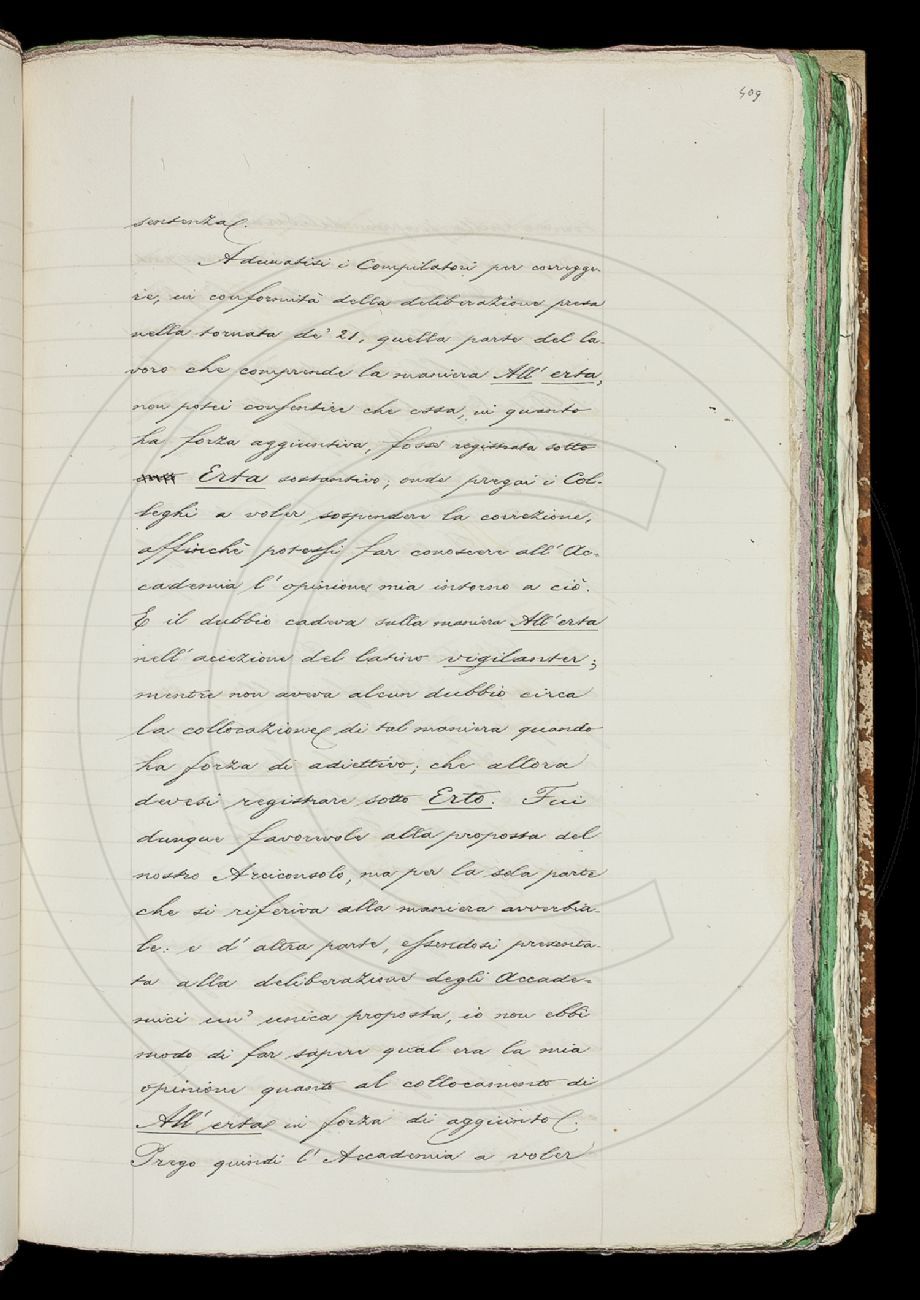 409
sentenza.
Adunatisi i Compilatori per corregge-
re, in conformità della deliberazione presa
nella tornata de' 21, quella parte del la-
voro che comprende la maniera All' erta,
non potei consentire che essa, in quanto
ha forza aggiuntiva, fosse registrata sotto
Erta sostantivo; onde pregai i Col-
leghi a voler sospendere la correzione,
affinchè potessi far conoscere all' Ac-
cademia l' opinione mia intorno a ciò.
E il dubbio cadeva sulla maniera All' erta
nell' accezione del latino vigilanter;
mentre non aveva alcun dubbio circa
la collocazione di tal maniera quando
ha forza di adiettivo; che allora
devesi registrare sotto Erto. Fui
dunque favorevole alla proposta del
nostro Arciconsolo, ma per la sola parte
che si riferiva alla maniera avverbia-
le: e d' altra parte, essendosi presenta-
ta alla deliberazione degli Accade-
mici un' unica proposta, io non ebbi
modo di far sapere qual era la mia
opinione quanto al collocamento di
All' erta in forza di aggiunto.
Prego quindi l' Accademia a voler